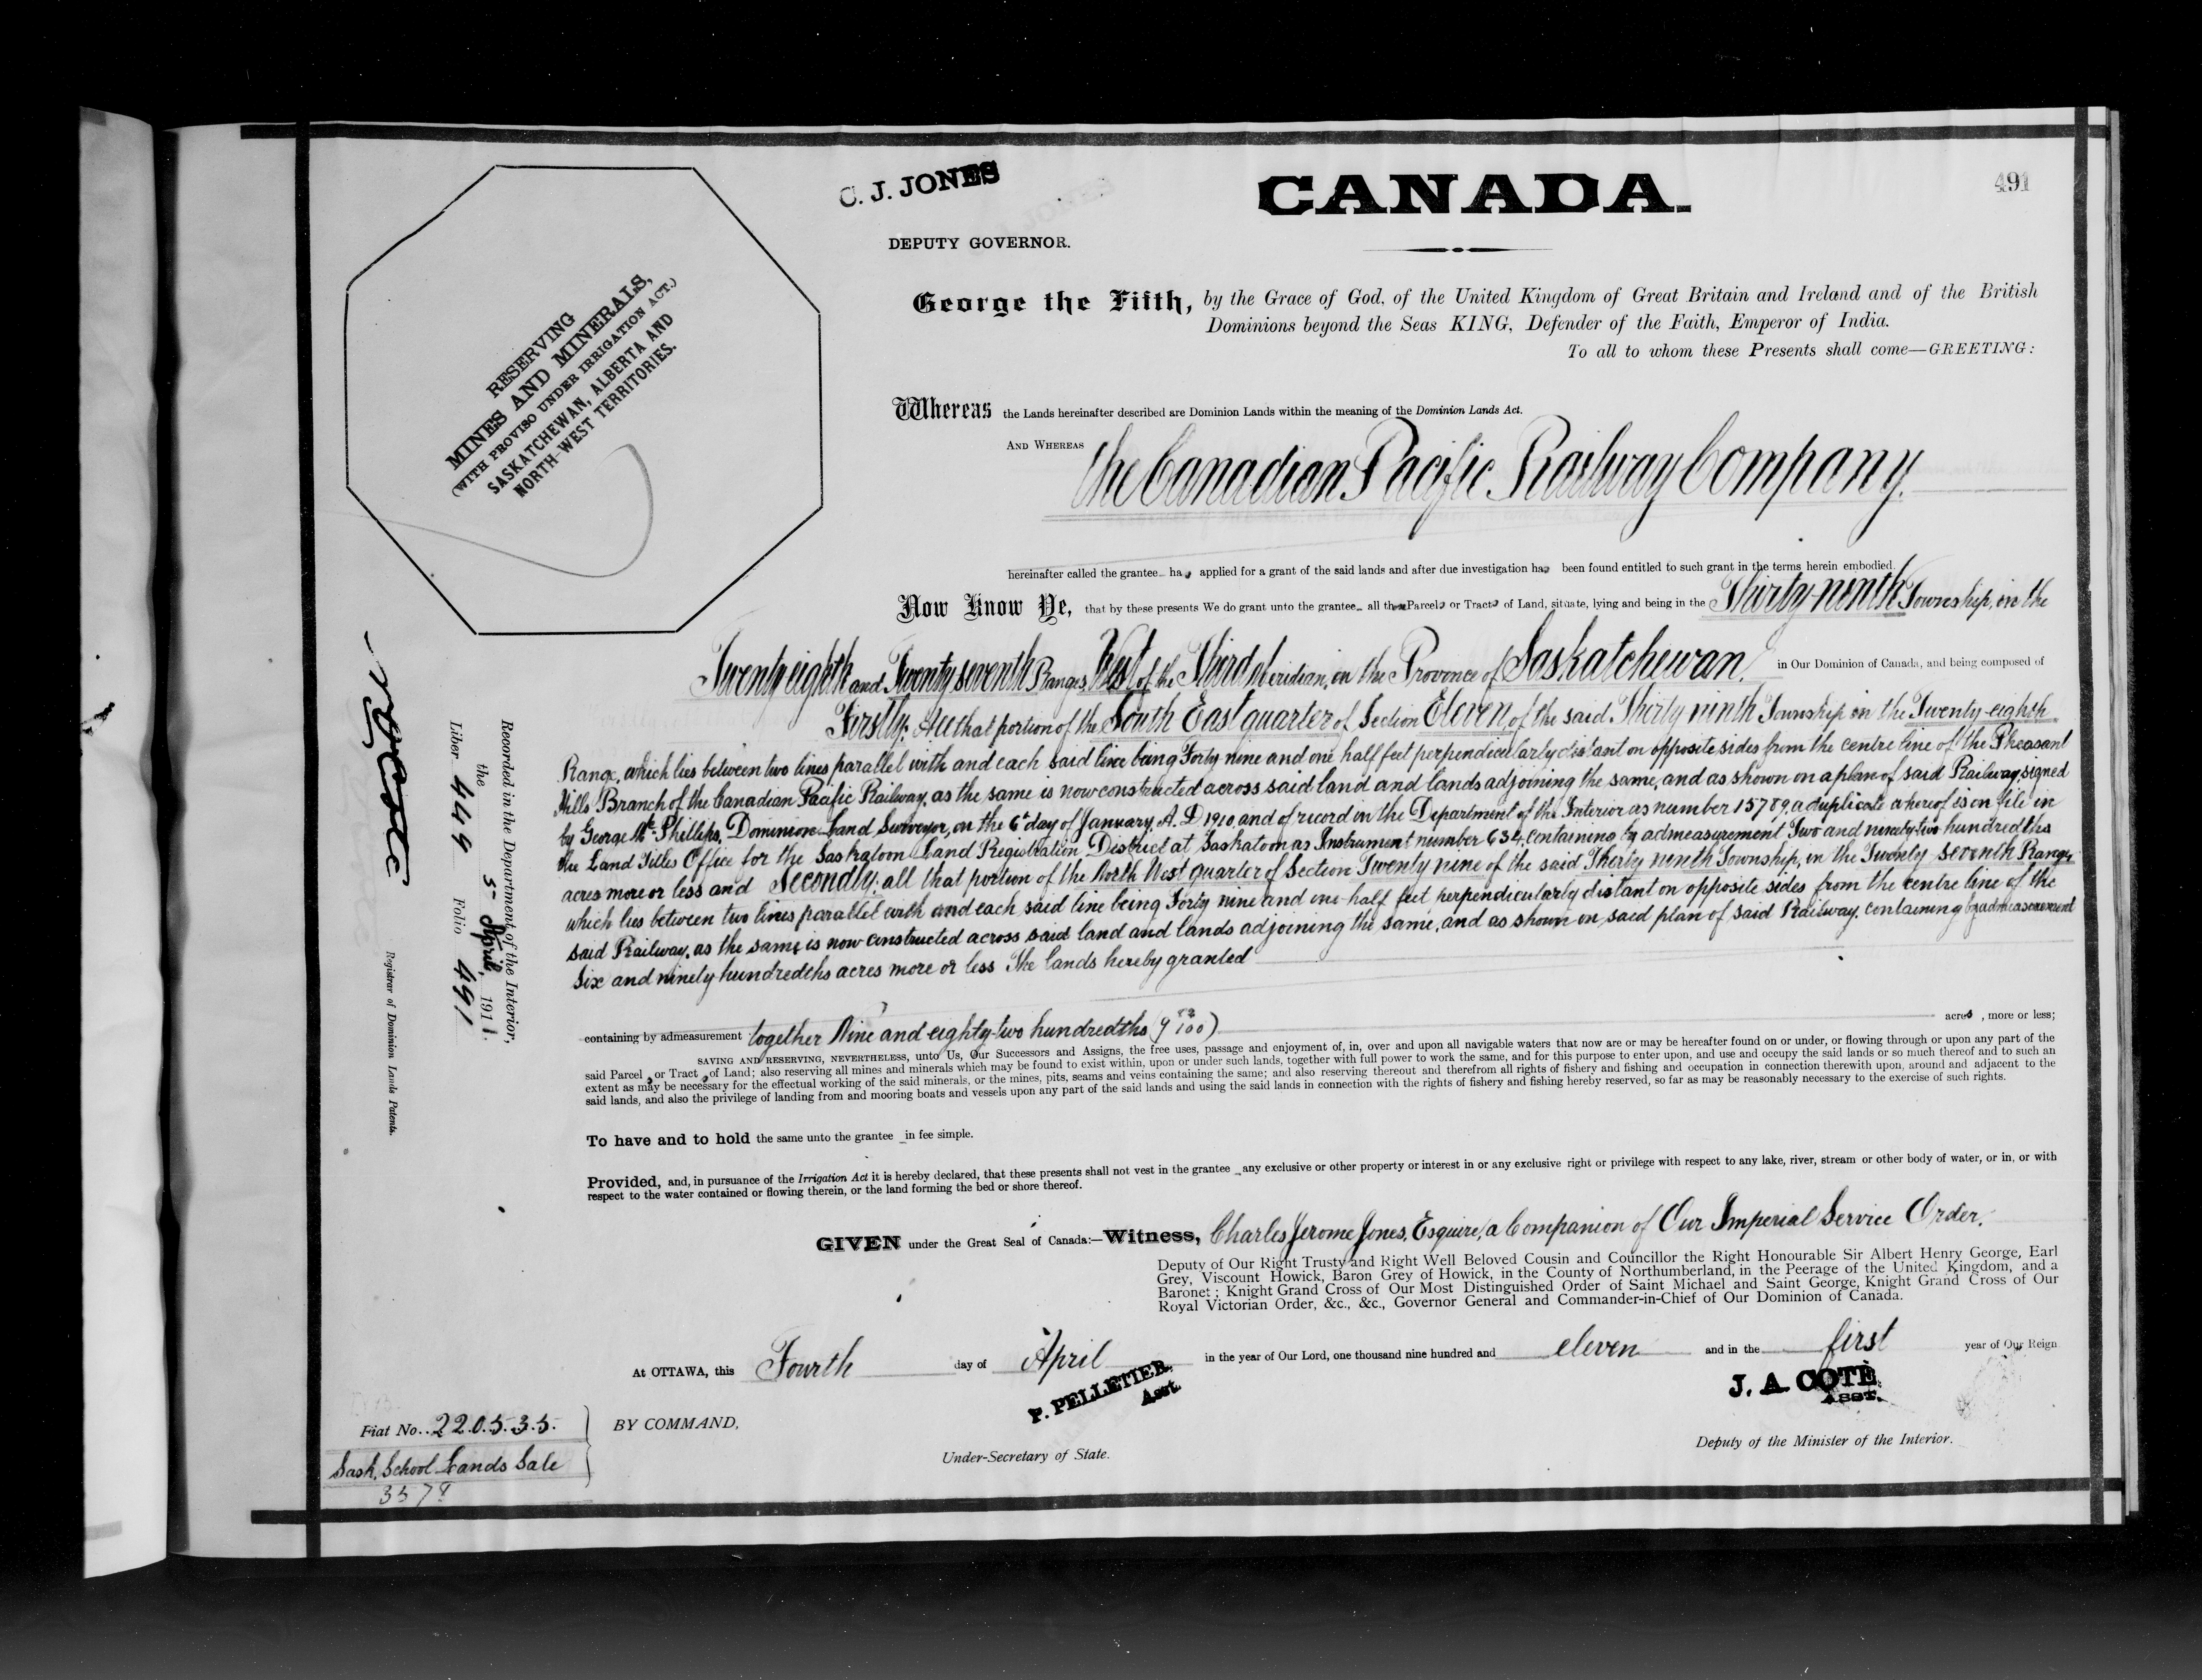 C. J. JONES
DEPUTY GOVERNOR.
CANADA.
491
RESERVING
MINES AND MINERALS,
(WITH PROVISO UNDER IRRIGATION ACT.)
SASKATCHEWAN, ALBERTA AND
NORTH-WEST TERRITORIES.
George the Fifth, by the Grace of God, of the United Kingdom of Great Britain and Ireland and of the British
Dominions beyond the Seas KING, Defender of the Faith, Emperor of India.
To all to whom these Presents shall come—GREETING:
Whereas the Lands hereinafter described are Dominion Lands within the meaning of the Dominion Lands Act.
AND WHEREAS The Canadian Pacific Railway Company.
hereinafter called the grantee has applied for a grant of the said lands and after due investigation has been found entitled to such grant in the terms herein embodied.
Now Know Ye, that by these presents We do grant unto the grantee all those Parcels or Tracts of Land, situate, lying and being in the Thirty-ninth Township, in the
Twenty eighth and Twenty seventh Ranges, West of the Third Meridian, in the Province of Saskatchewan, in Our Dominion of Canada, and being composed of
Firstly: All that portion of the South East quarter of Section Eleven of the said Thirty ninth Township in the Twenty-eighth
Range, which lies between two lines parallel with and each said line being Forty nine and one half feet perpendicularly distant on opposite sides from the centre line of the Pheasant
Hills Branch of the Canadian Pacific Railway, as the same is now constructed across said land and lands adjoining the same, and as shown on a plan of said Railway, signed
by George Mc. Phillips, Dominion Land Surveyor, on the 6th day of January, A. D 1910, and of record in the Department of the Interior as number 15789, a duplicate whereof is on file in
the Land Titles Office for the Saskatoon Land Registration District at Saskatoon as Instrument number 634, containing by admeasurement Two and ninety-two hundredths
acres more or less and Secondly: all that portion of the North West quarter of Section Twenty nine of the said Thirty ninth Township, in the Twenty seventh Range,
which lies between two lines parallel with and each said line being Forty nine and one-half feet perpendicularly distant on opposite sides from the centre line of the
said Railway, as the same is now constructed across said land and lands adjoining the same, and as shown on said plan of said Railway, containing by admeasurement
Six and ninety hundredths acres more or less The lands hereby granted
containing by admeasurement together Nine and eighty-two hundredths (9 82/100) acres, more or less;
SAVING AND RESERVING, NEVERTHELESS, unto Us, Our Successors and Assigns, the free uses, passage and enjoyment of, in, over and upon all navigable waters that now are or may be hereafter found on or under, or flowing through or upon any part of the
said Parcels or Tracts of Land; also reserving all mines and minerals which may be found to exist within, upon or under such lands, together with full power to work the same, and for this purpose to enter upon, and use and occupy the said lands or so much thereof and to such an
extent as may be necessary for the effectual working of the said minerals, or the mines, pits, seams and veins containing the same; and also reserving thereout and therefrom all rights of fishery and fishing and occupation in connection therewith upon, around and adjacent to the
said lands, and also the privilege of landing from and mooring boats and vessels upon any part of the said lands and using the said lands in connection with the rights of fishery and fishing hereby reserved, so far as may be reasonably necessary to the exercise of such rights.
To have and to hold the same unto the grantee in fee simple.
Provided, and, in pursuance of the Irrigation Act it is hereby declared, that these presents shall not vest in the grantee any exclusive or other property or interest in or any exclusive right or privilege with respect to any lake, river, stream or other body of water, or in, or with
respect to the water contained or flowing therein, or the land forming the bed or shore thereof.
GIVEN under the Great Seal of Canada:—Witness, Charles Jerome Jones, Esquire, a Companion of Our Imperial Service Order.
Deputy of Our Right Trusty and Right Well Beloved Cousin and Councillor the Right Honourable Sir Albert Henry George, Earl
Grey, Viscount Howick, Baron Grey of Howick, in the County of Northumberland, in the Peerage of the United Kingdom, and a
Baronet; Knight Grand Cross of Our Most Distinguished Order of Saint Michael and Saint George, Knight Grand Cross of Our
Royal Victorian Order, &c., &c., Governor General and Commander-in-Chief of Our Dominion of Canada.
At OTTAWA, this Fourth day of April in the year of Our Lord, one thousand nine hundred and eleven and in the first year of Our Reign
P. PELLETIER.
Asst.
J. A. COTÉ
ASST.
BY COMMAND,
Under-Secretary of State.
Deputy of the Minister of the Interior.
Fiat No. 220535.
Sask. School Lands Sale
3578
Recorded in the Department of the Interior,
the 5 April, 1911.
Liber 449 Folio 491
Registrar of Dominion Lands Patents.